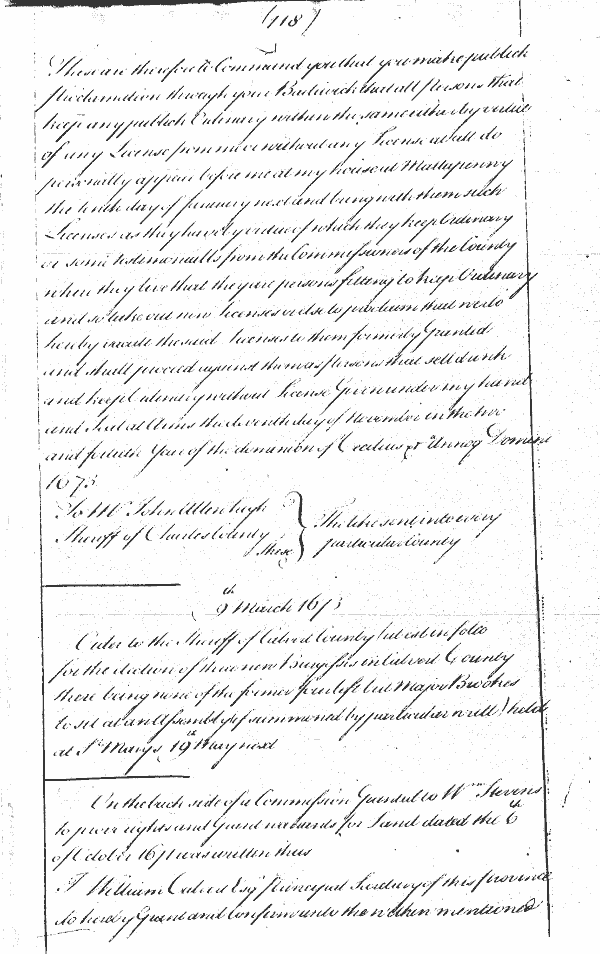 (118)
These are therefore to Command you that you make publick
Proclamation through your Bailiwick that all persons that
keep any publick Ordinary within the same either by virtue
of any License from me or without any License at all do
personally appear before me at my house at Mattapenny
the tenth day of January next and bring with them such
Licenses as they have by vertue of which they keep Ordinary
or some testimonialls from the Commissioners of the County
where they live that they are persons fitting to keep Ordinary
and so take out new Licenses or else to proclaim that we do
hereby vacate the said Licenses to them formerly Granted
and shall proceed against them as persons that sell drink
and keep Ordinary without License Given under my hand
and Seal at Arms the eleventh day of November in the two
and fortieth Year of the dominion of Cecilius &c Annoq Domini
1673
To Mr John Allen high
Sheriff of Charles County
These
The like sent into every
particular County
9th March 1673
Order to the Sheriff of Calvert County but est in folio
for the election of three new Burgesses in Calvert County
there being none of the former four left but Major Brookes
to sit at an Assembly (if summoned by particular writt) held
at St Marys 19th May next
On the back side of a Commission Granted to Wm Stevens
to prove rights and Grand warrants for Land dated the 6th
of October 1671 was written thus
I William Calvert Esqr Principal Secretary of this province
do hereby Grant and Confirm unto the within mentioned